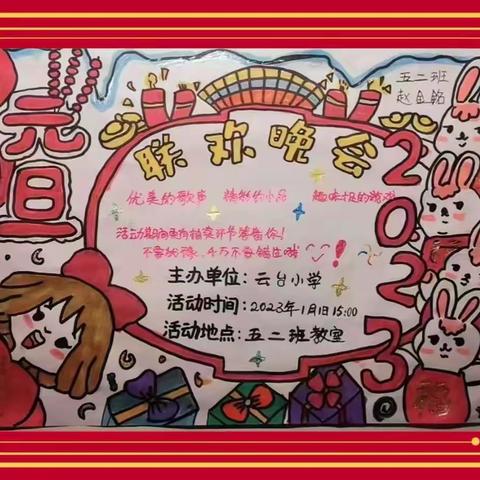 元旦
五二班
赵鱼铭
联欢晚会
2023
优美的歌声 精彩的小品 趣味极的游戏
活动期间更有抽奖环节等着你!
不要犹豫,千万不要错过哦!
主办单位:云台小学
活动时间:2023年1月1日15:00
活动地点:五二班教室
福